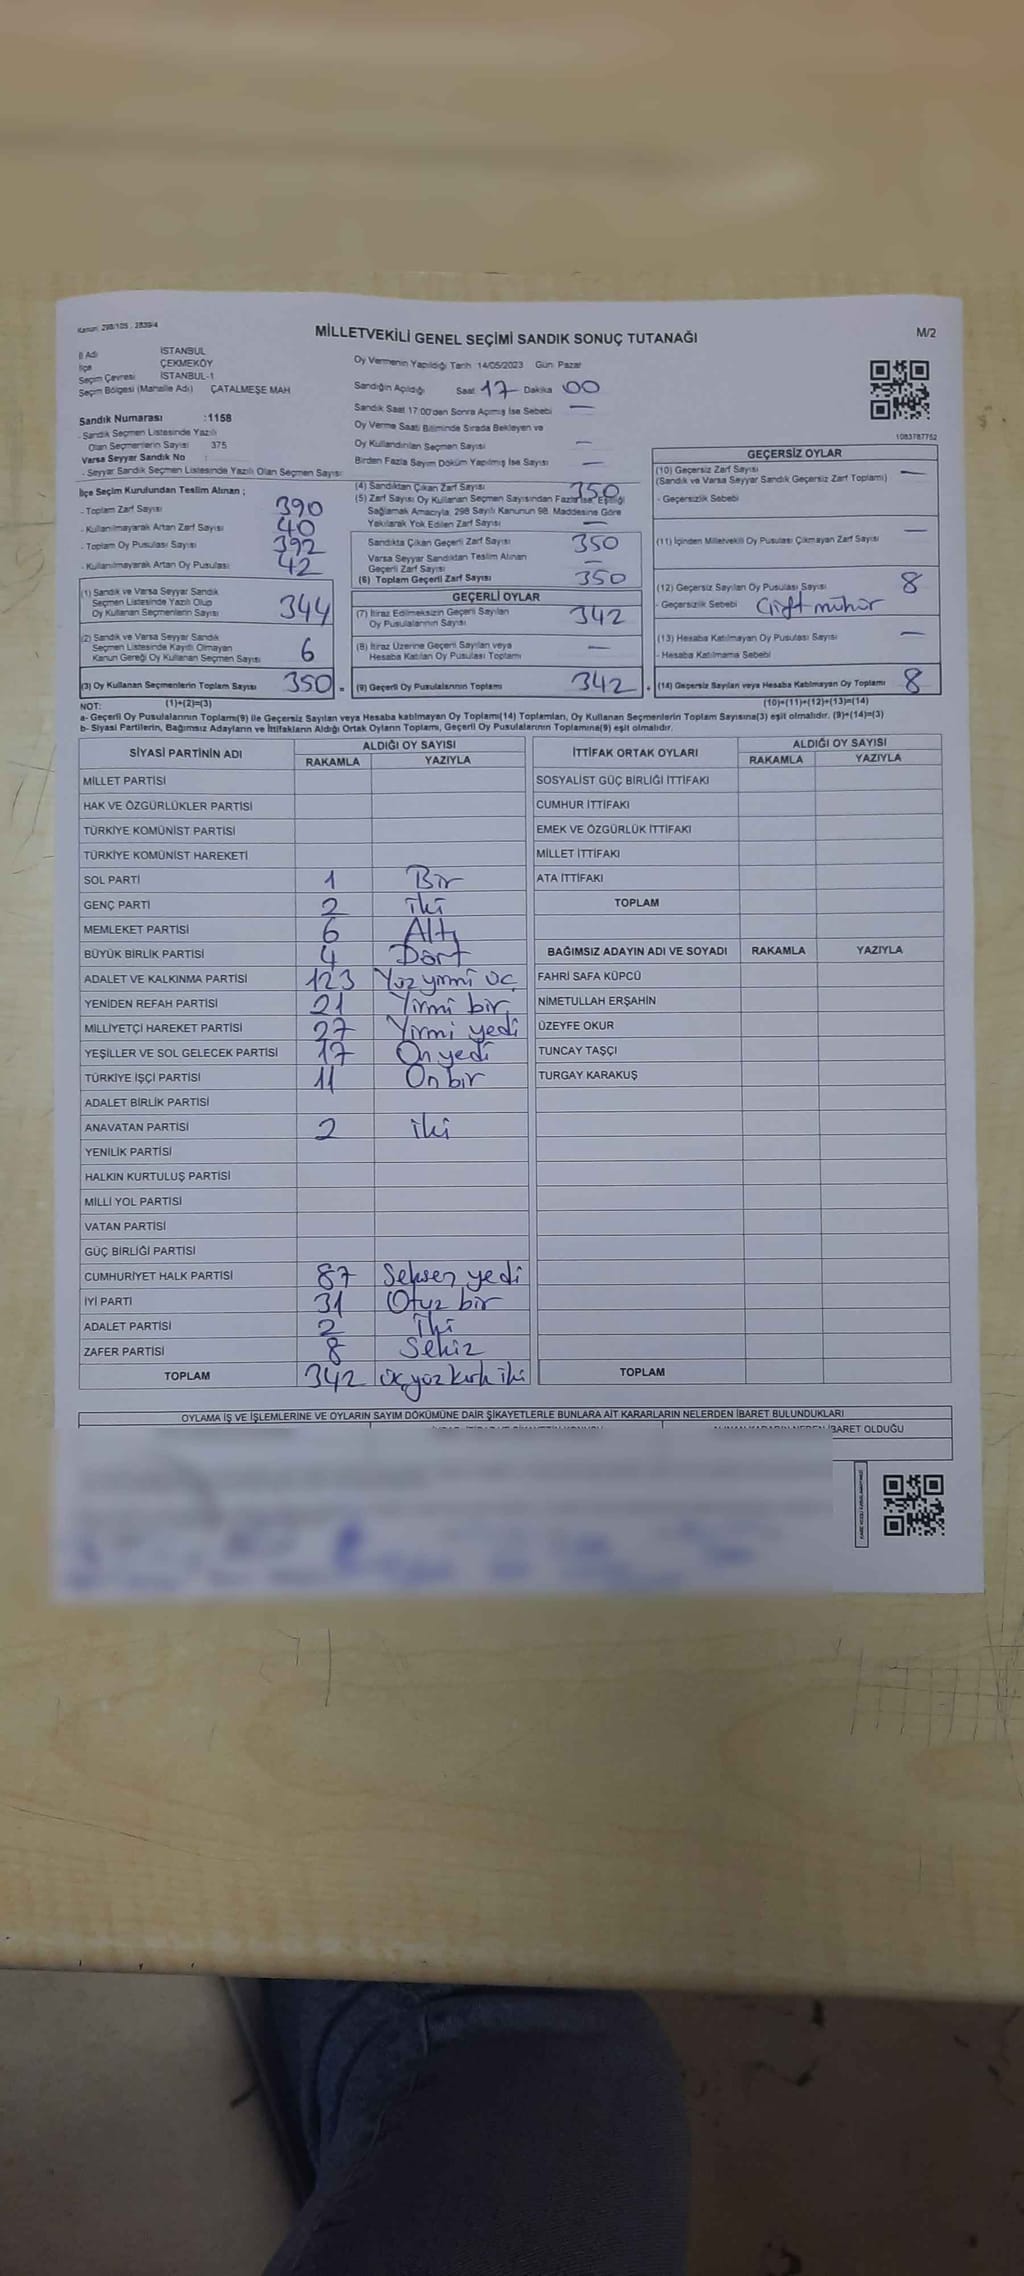 Kanun: 298/105 , 2839/4
MİLLETVEKİLİ GENEL SEÇİMİ SANDIK SONUÇ TUTANAĞI
M/2
İl Adı İSTANBUL
İlçe ÇEKMEKÖY
Seçim Çevresi İSTANBUL-1
Seçim Bölgesi (Mahalle Adı) ÇATALMEŞE MAH
Sandık Numarası :1158
- Sandık Seçmen Listesinde Yazılı
Olan Seçmenlerin Sayısı 375
Varsa Seyyar Sandık No :
- Seyyar Sandık Seçmen Listesinde Yazılı Olan Seçmen Sayısı:
Oy Vermenin Yapıldığı Tarih 14/05/2023 Gün Pazar
Sandığın Açıldığı Saat 17 Dakika 00
Sandık Saat 17:00'den Sonra Açılmış İse Sebebi —
Oy Verme Saati Bitiminde Sırada Bekleyen ve
Oy Kullandırılan Seçmen Sayısı —
Birden Fazla Sayım Döküm Yapılmış İse Sayısı —
1083787752
İlçe Seçim Kurulundan Teslim Alınan ;
- Toplam Zarf Sayısı 390
- Kullanılmayarak Artan Zarf Sayısı 40
- Toplam Oy Pusulası Sayısı 392
- Kullanılmayarak Artan Oy Pusulası 42
(1) Sandık ve Varsa Seyyar Sandık
Seçmen Listesinde Yazılı Olup
Oy Kullanan Seçmenlerin Sayısı 344
(2) Sandık ve Varsa Seyyar Sandık
Seçmen Listesinde Kayıtlı Olmayan
Kanun Gereği Oy Kullanan Seçmen Sayısı 6
(3) Oy Kullanan Seçmenlerin Toplam Sayısı 350 =
(1)+(2)=(3)
(4) Sandıktan Çıkan Zarf Sayısı 350
(5) Zarf Sayısı Oy Kullanan Seçmen Sayısından Fazla İse, Eşitliği
Sağlamak Amacıyla, 298 Sayılı Kanunun 98. Maddesine Göre
Yakılarak Yok Edilen Zarf Sayısı —
Sandıkta Çıkan Geçerli Zarf Sayısı 350
Varsa Seyyar Sandıktan Teslim Alınan
Geçerli Zarf Sayısı —
(6) Toplam Geçerli Zarf Sayısı 350
GEÇERLİ OYLAR
(7) İtiraz Edilmeksizin Geçerli Sayılan
Oy Pusulalarının Sayısı 342
(8) İtiraz Üzerine Geçerli Sayılan veya
Hesaba Katılan Oy Pusulası Toplamı —
(9) Geçerli Oy Pusulalarının Toplamı 342 +
GEÇERSİZ OYLAR
(10) Geçersiz Zarf Sayısı —
(Sandık ve Varsa Seyyar Sandık Geçersiz Zarf Toplamı)
- Geçersizlik Sebebi
(11) İçinden Milletvekili Oy Pusulası Çıkmayan Zarf Sayısı —
(12) Geçersiz Sayılan Oy Pusulası Sayısı 8
- Geçersizlik Sebebi Çift mühür
(13) Hesaba Katılmayan Oy Pusulası Sayısı —
- Hesaba Katılmama Sebebi
(14) Geçersiz Sayılan veya Hesaba Katılmayan Oy Toplamı 8
(10)+(11)+(12)+(13)=(14)
NOT:
a- Geçerli Oy Pusulalarının Toplamı(9) ile Geçersiz Sayılan veya Hesaba katılmayan Oy Toplamı(14) Toplamları, Oy Kullanan Seçmenlerin Toplam Sayısına(3) eşit olmalıdır. (9)+(14)=(3)
b- Siyasi Partilerin, Bağımsız Adayların ve İttifakların Aldığı Ortak Oyların Toplamı, Geçerli Oy Pusulalarının Toplamına(9) eşit olmalıdır.
SİYASİ PARTİNİN ADI ALDIĞI OY SAYISI
RAKAMLA YAZIYLA
MİLLET PARTİSİ
HAK VE ÖZGÜRLÜKLER PARTİSİ
TÜRKİYE KOMÜNİST PARTİSİ
TÜRKİYE KOMÜNİST HAREKETİ
SOL PARTİ 1 Bir
GENÇ PARTİ 2 iki
MEMLEKET PARTİSİ 6 Altı
BÜYÜK BİRLİK PARTİSİ 4 Dört
ADALET VE KALKINMA PARTİSİ 123 Yüz yirmi üç
YENİDEN REFAH PARTİSİ 21 Yirmi bir
MİLLİYETÇİ HAREKET PARTİSİ 27 Yirmi yedi
YEŞİLLER VE SOL GELECEK PARTİSİ 17 On yedi
TÜRKİYE İŞÇİ PARTİSİ 11 On bir
ADALET BİRLİK PARTİSİ
ANAVATAN PARTİSİ 2 iki
YENİLİK PARTİSİ
HALKIN KURTULUŞ PARTİSİ
MİLLİ YOL PARTİSİ
VATAN PARTİSİ
GÜÇ BİRLİĞİ PARTİSİ
CUMHURİYET HALK PARTİSİ 87 Seksen yedi
İYİ PARTİ 31 Otuz bir
ADALET PARTİSİ 2 İki
ZAFER PARTİSİ 8 Sekiz
TOPLAM 342 üç yüz kırk iki
İTTİFAK ORTAK OYLARI ALDIĞI OY SAYISI
RAKAMLA YAZIYLA
SOSYALİST GÜÇ BİRLİĞİ İTTİFAKI
CUMHUR İTTİFAKI
EMEK VE ÖZGÜRLÜK İTTİFAKI
MİLLET İTTİFAKI
ATA İTTİFAKI
TOPLAM
BAĞIMSIZ ADAYIN ADI VE SOYADI RAKAMLA YAZIYLA
FAHRİ SAFA KÜPCÜ
NİMETULLAH ERŞAHİN
ÜZEYFE OKUR
TUNCAY TAŞÇI
TURGAY KARAKUŞ
TOPLAM
OYLAMA İŞ VE İŞLEMLERİNE VE OYLARIN SAYIM DÖKÜMÜNE DAİR ŞİKAYETLERLE BUNLARA AİT KARARLARIN NELERDEN İBARET BULUNDUKLARI
İBARET OLDUĞU